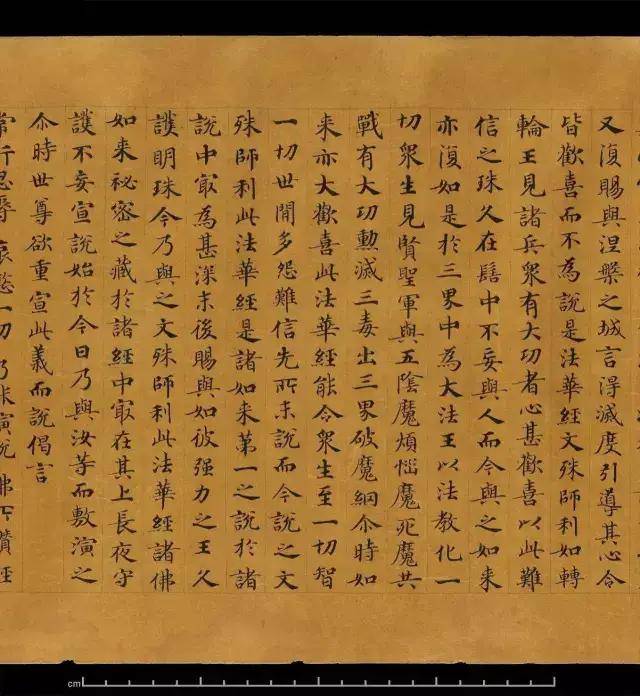 又復賜與涅槃之城言得滅度引導其心令
皆歡喜而不為說是法華經文殊師利如轉
輪王見諸兵眾有大功者心甚歡喜以此難
信之珠久在髻中不妄與人而今與之如來
亦復如是於三界中為大法王以法教化一
切眾生見賢聖軍與五陰魔煩惱魔死魔共
戰有大功勳滅三毒出三界破魔網尒時如
來亦大歡喜此法華經能令眾生至一切智
一切世間多怨難信先所未說而今說之文
殊師利此法華經是諸如來第一之說於諸
說中冣為甚深末後賜與如彼强力之王久
護明珠今乃與之文殊師利此法華經諸佛
如來秘密之藏於諸經中冣在其上長夜守
護不妄宣說始於今日乃與汝等而敷演之
尒時世尊欲重宣此義而說偈言
常行忍辱 哀愍一切 乃能演說 佛所讚經
cm